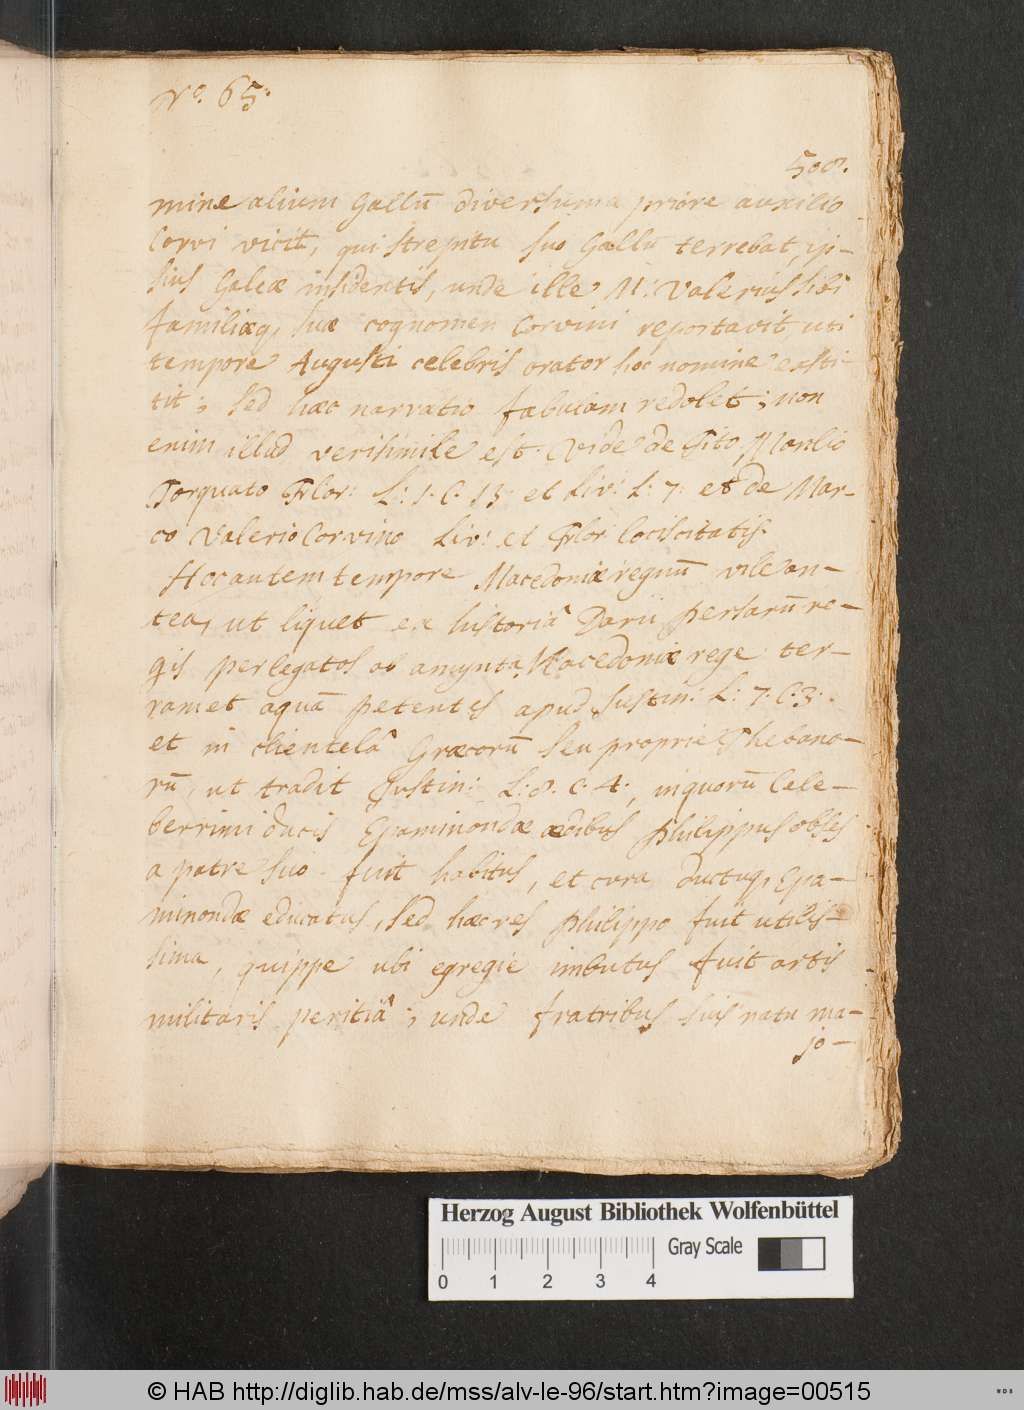 No. 65.
508.
mine alium Gallū diversum a priore auxilio
Corvi vicit, qui strepitu suo Gallū terrebat, ip-
sius Galeæ insidentis, unde ille M: Valerius sibi
familiæq, suæ cognomen Corvini reportavit, uti
tempore Augusti celebris orator hoc nomine exsti-
tit; sed hæc narratio fabulam redolet; non
enim illud verisimile est. Vide de Tito Manlio
Torquato Flor: L: 1. C. 13. et Liv: L: 7: et de Mar-
co Valerio Corvino Liv: et Flor. locis citatis.
Hoc autem tempore Macedoniæ regnū vile an-
tea, ut liquet ex historiâ Darii Persarū re-
gis per legatos ab Amynta Macedoniæ rege ter-
ram et aquā petentis apud Justin: L: 7. C. 3.
et in clientelâ Græcorū seu proprie Thebano-
rū, ut tradit Justin: L: 8. C. 4., in quorū Cele-
berrimi ducis Epaminondæ ædibus Philippus obses
a patre suo fuit habitus, et cura ductuq, Epa-
minondæ educatus, sed hæc res Philippo fuit utilis-
sima, quippe ubi egregie imbutus fuit artis
militaris peritiâ; unde fratribus suis natu ma-
jo-
Herzog August Bibliothek Wolfenbüttel
Gray Scale
0 1 2 3 4
© HAB http://diglib.hab.de/mss/alv-le-96/start.htm?image=00515